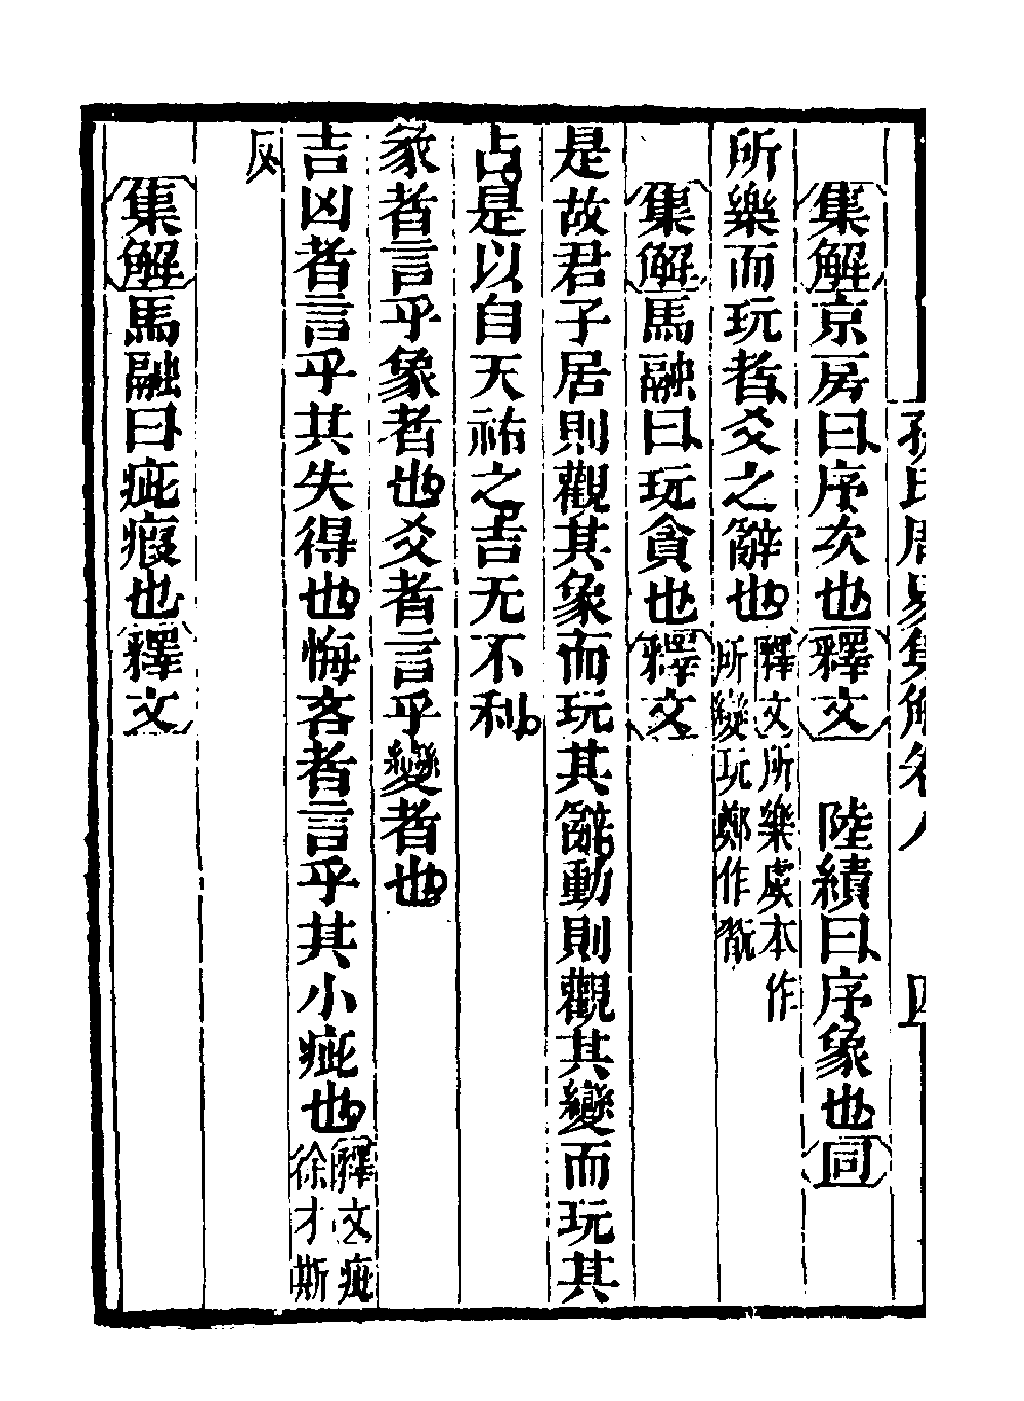 集解京房曰序次也釋文　陸績曰序象也同
所樂而玩者爻之辭也釋文所樂虞本作所變玩鄭作翫
集解馬融曰玩貪也釋文
是故君子居則觀其象而玩其辭動則觀其變而玩其
占是以自天祐之吉无不利
彖者言乎象者也爻者言乎變者也
吉凶者言乎其失得也悔吝者言乎其小疵也釋文疵徐才斯
反
集解馬融曰疵瑕也釋文